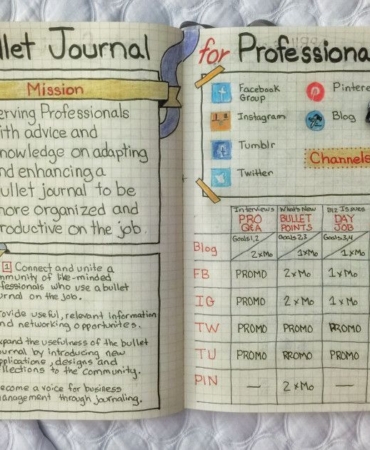 llet Journal
Mission
erving Professionals
ith advice and
nowledge on adapting
nd enhancing a
ullet journal to be
ore organized and
roductive on the job.
1 Connect and unite a
mmunity of like-minded
fessionals who use a bullet
urnal on the job.
ovide useful, relevant information
nd networking opportunites.
xpand the usefulness of the bullet
urnal by introducing new
pplications, designs and
llections to the community.
ecome a voice for business
nagement through journaling.
for Professiona
Facebook
Group
Pintere
Instagram
Blog
Tumblr
Channels
Twitter
Interviews What's New Biz Issues
PRO Q&A BULLET POINTS DAY JOB
Goals 1,2 Goals 2,3 Goals 3,4
Blog 2xMo 1xMo 1xMo
FB PROMO 2xMo 1xMo
IG PROMO 2xMo 1xMo
TW PROMO PROMO PROMO
TU PROMO PROMO PROMO
PIN — 2xMo —